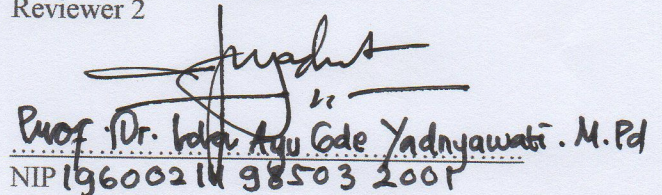 Reviewer 2
Prof. Dr. Ida Ayu Gde Yadnyawati. M.Pd
NIP 19600214 98503 2001